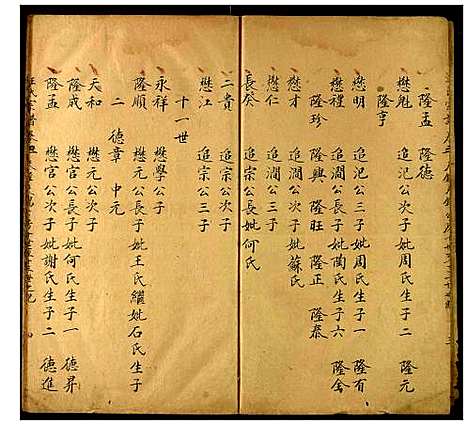 隆孟 隆德
懋魁 追汜公次子妣周氏生子二 隆元
隆亨
懋明 追汜公三子妣周氏生子一 隆有
懋禮 追澗公長子妣陶氏生子六 隆舍
隆珍 隆興 隆旺 隆正 隆泰
懋才 追澗公次子妣蘇氏
懋仁 追澗公三子
長癸 追宗公長子妣何氏
二貴 追宗公次子
懋江 追宗公三子
十一世
永祥 懋學公子
隆順 懋元公長子妣王氏繼妣石氏生子
二 德章 中元
天和 懋元公次子
隆成 懋官公長子妣何氏生子一 德昇
隆孟 懋官公次子妣謝氏生子二 德進